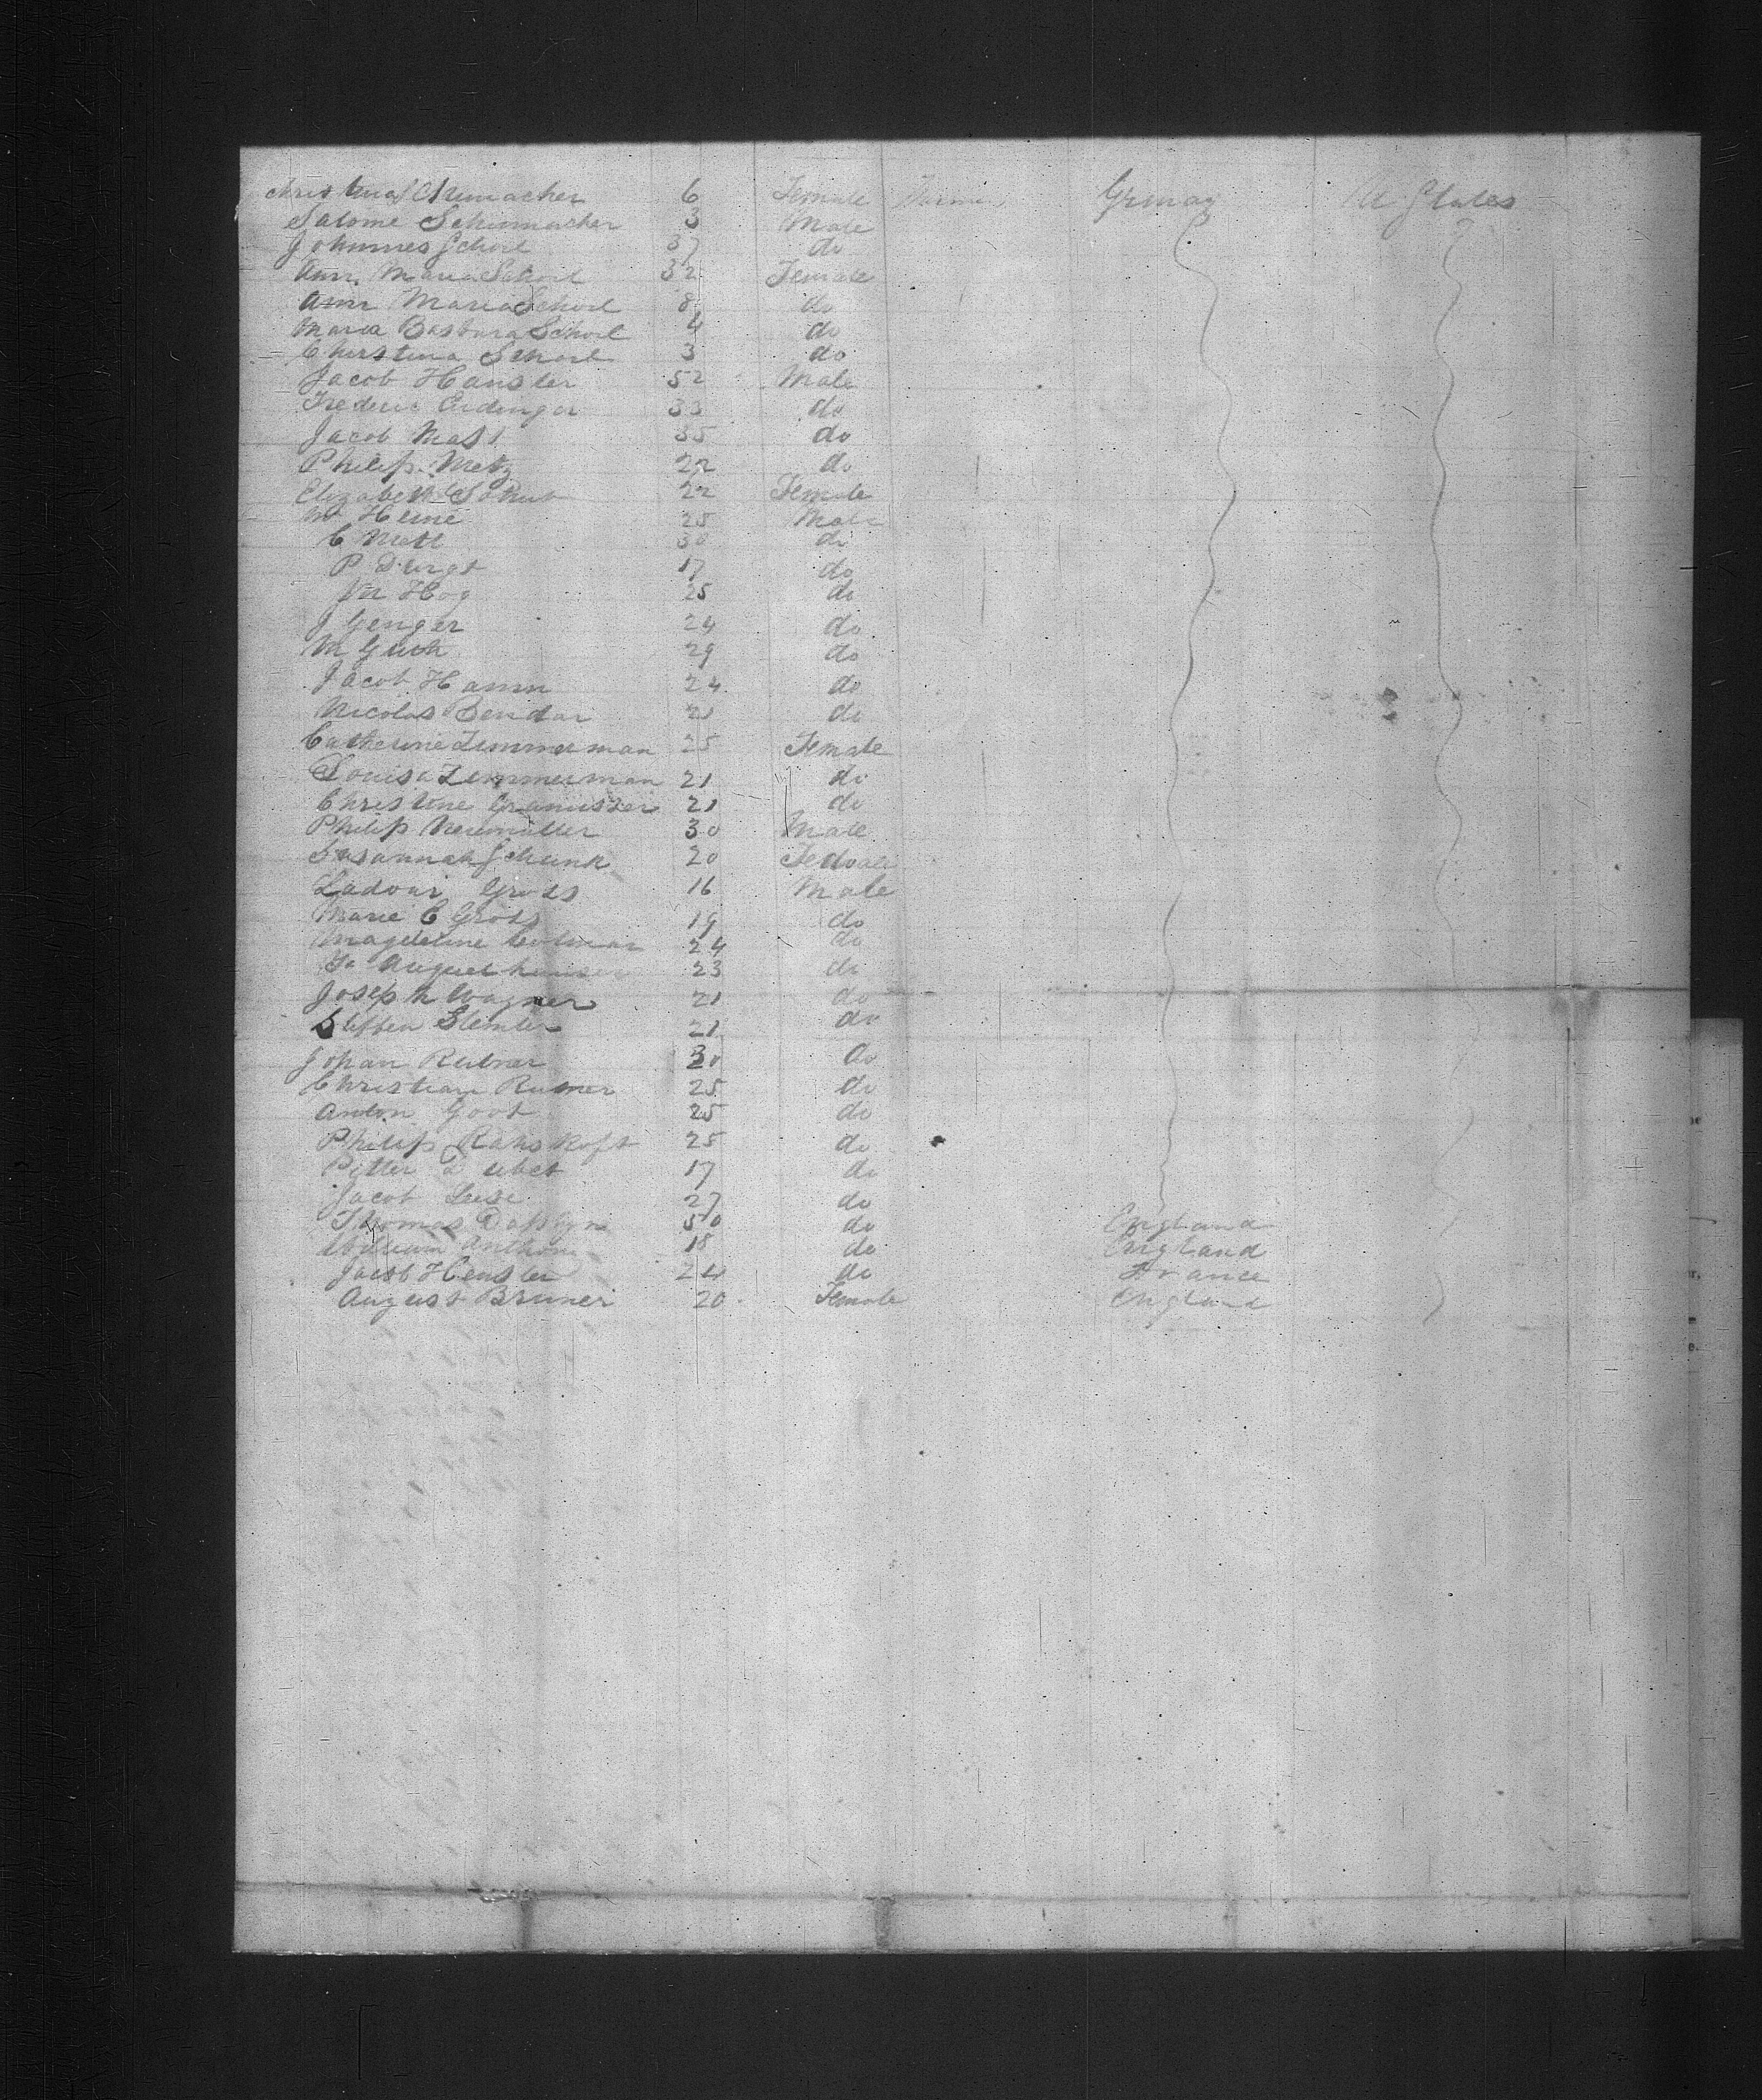 Christina Schumacher 6 Female Farmer Grmay U States
Salome Schumacher 3 Male
Johnnes Schoel 37 do
Ann Maria Schoel 32 Female
Ann Maria Schoel 8 do
Maria Basbura Schoel 4 do
Cherstina Schoel 3 do
Jacob Hansler 52 Male
Frederic Eidinger 33 do
Jacob Mast 35 do
Philip Metz 22 do
Elizabeth 22 Female
M Heine 25 Male
C Mett 30 do
P Durgt 17 do
Hog 25 do
J Genger 24 do
M Guth 29 do
Jacob Hamm 24 do
Nicolas Bendar 21 do
Catherine Zimmerman 25 Female
Louisa Zemmerman 21 do
Christine 21 do
Philip Neumuller 30 Male
Susannah Schunk 20 Female
Gross 16 Male
Marie C Gross 19 do
Magdeline Colman 24 do
23 do
Joseph Wagner 21 do
Steffen 21 do
Johan Rubner 30 do
Christian 25 do
Anton Goot 25 do
Philip Rahskoft 25 do
Petter Dubet 17 do
Jacob Luse 27 do
Thomas 50 do England
William Anthony 18 do England
Jacob Hensler 24 do France
August Bruner 20 Female England